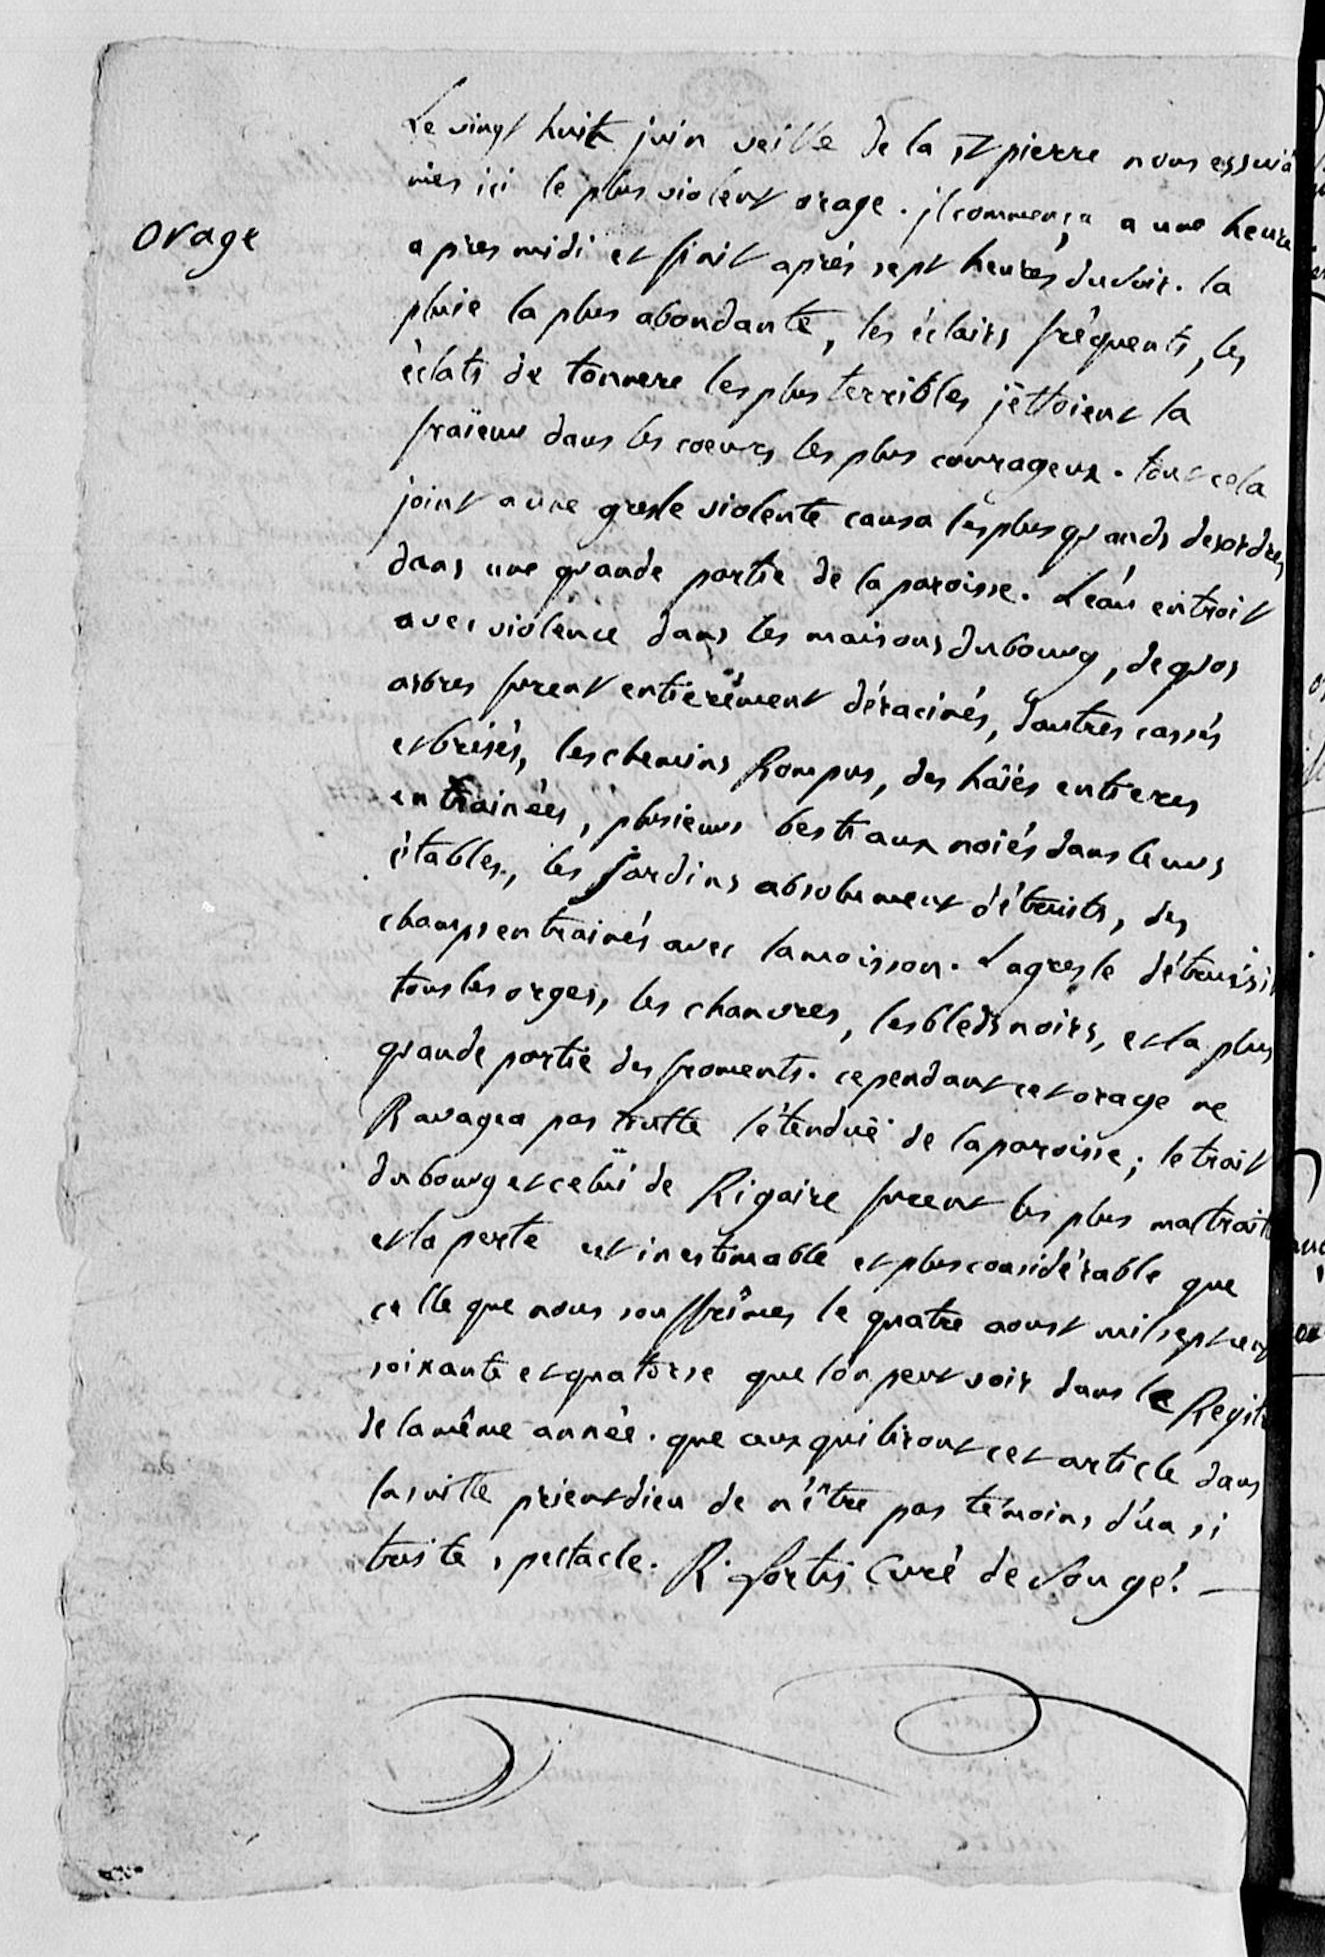 Orage
Le vingt huit juin veille de la st pierre nous essuiâ
mes ici le plus violent orage. il commença a une heure
apres midi et finit aprés sept heures du soir. la
pluie la plus abondante, les éclairs fréquents, les
éclats de tonnere les plus terribles jéttoient la
fraïeur dans les coeurs les plus courageux. tout cela
joint a une gresle violente causa les plus grands desordres
dans une grande partie de la paroisse. L'eau entroit
avec violence dans les maisons du bourg, de gros
arbres furent entierément déracinés, d'autres cassés
et brisés, les chemins Rompus, des haïés entieres
entrainées, plusieurs bestiaux noiés dans leurs
étables, les jardins absolument détruits, des
champs entrainés avec la moisson. La gresle détruisi
tous les orges, les chanvres, les bleds noirs, et la plus
grande partie des froments. cependant cet orage ne
Ravagea pas toutte l'étenduë de la paroisse; le trait
du bourg et celüi de Rigaire furent les plus maltrait
et la perte est inestimable et plus considérable que
celle que nous souffrîmes le quatre aoust mil sept cent
soixante et quatorse que l'on peut voir dans le Regist
de la même année. que ceux qui liront cet article dans
la suitte prient dieu de n'être pas témoins d'un si
triste spectacle. R. fortis Curé de Sougé.